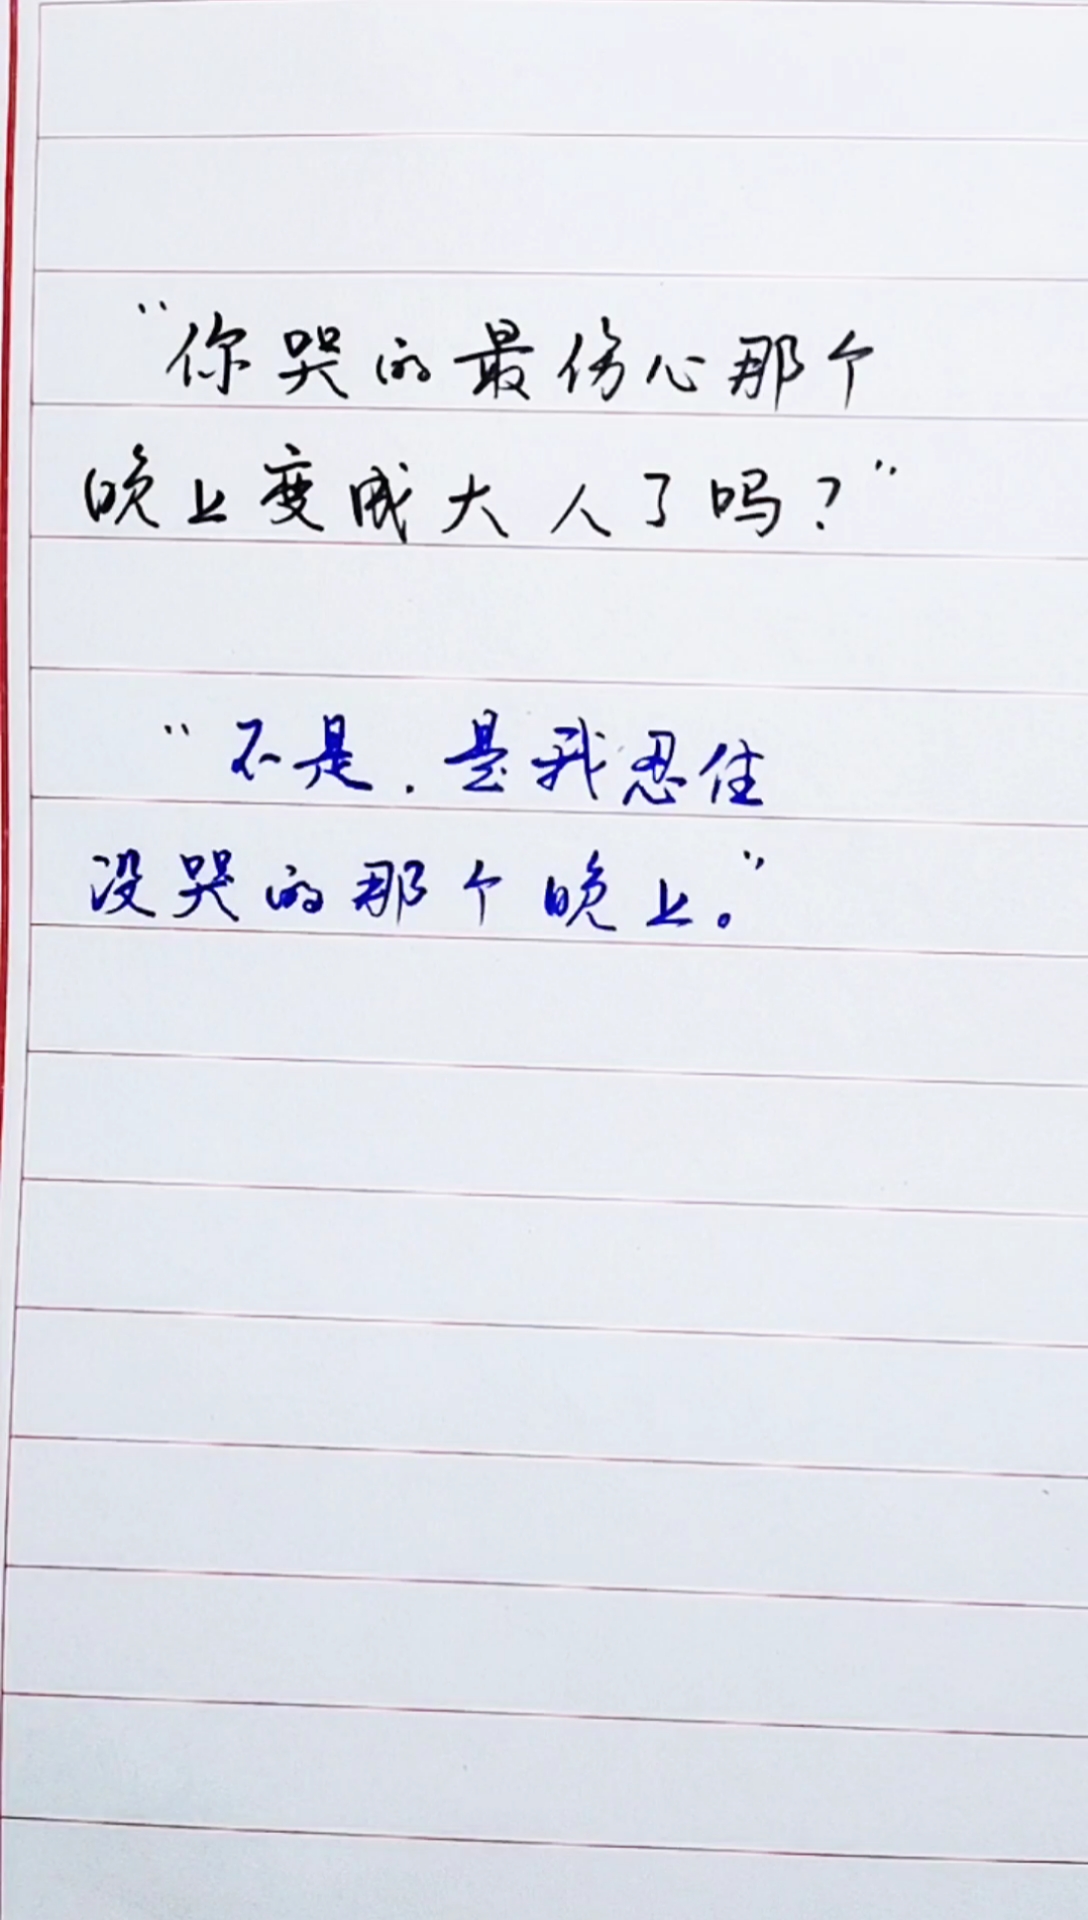 “你哭的最伤心那个
晚上变成大人了吗？”
“不是．是我忍住
没哭的那个晚上。”